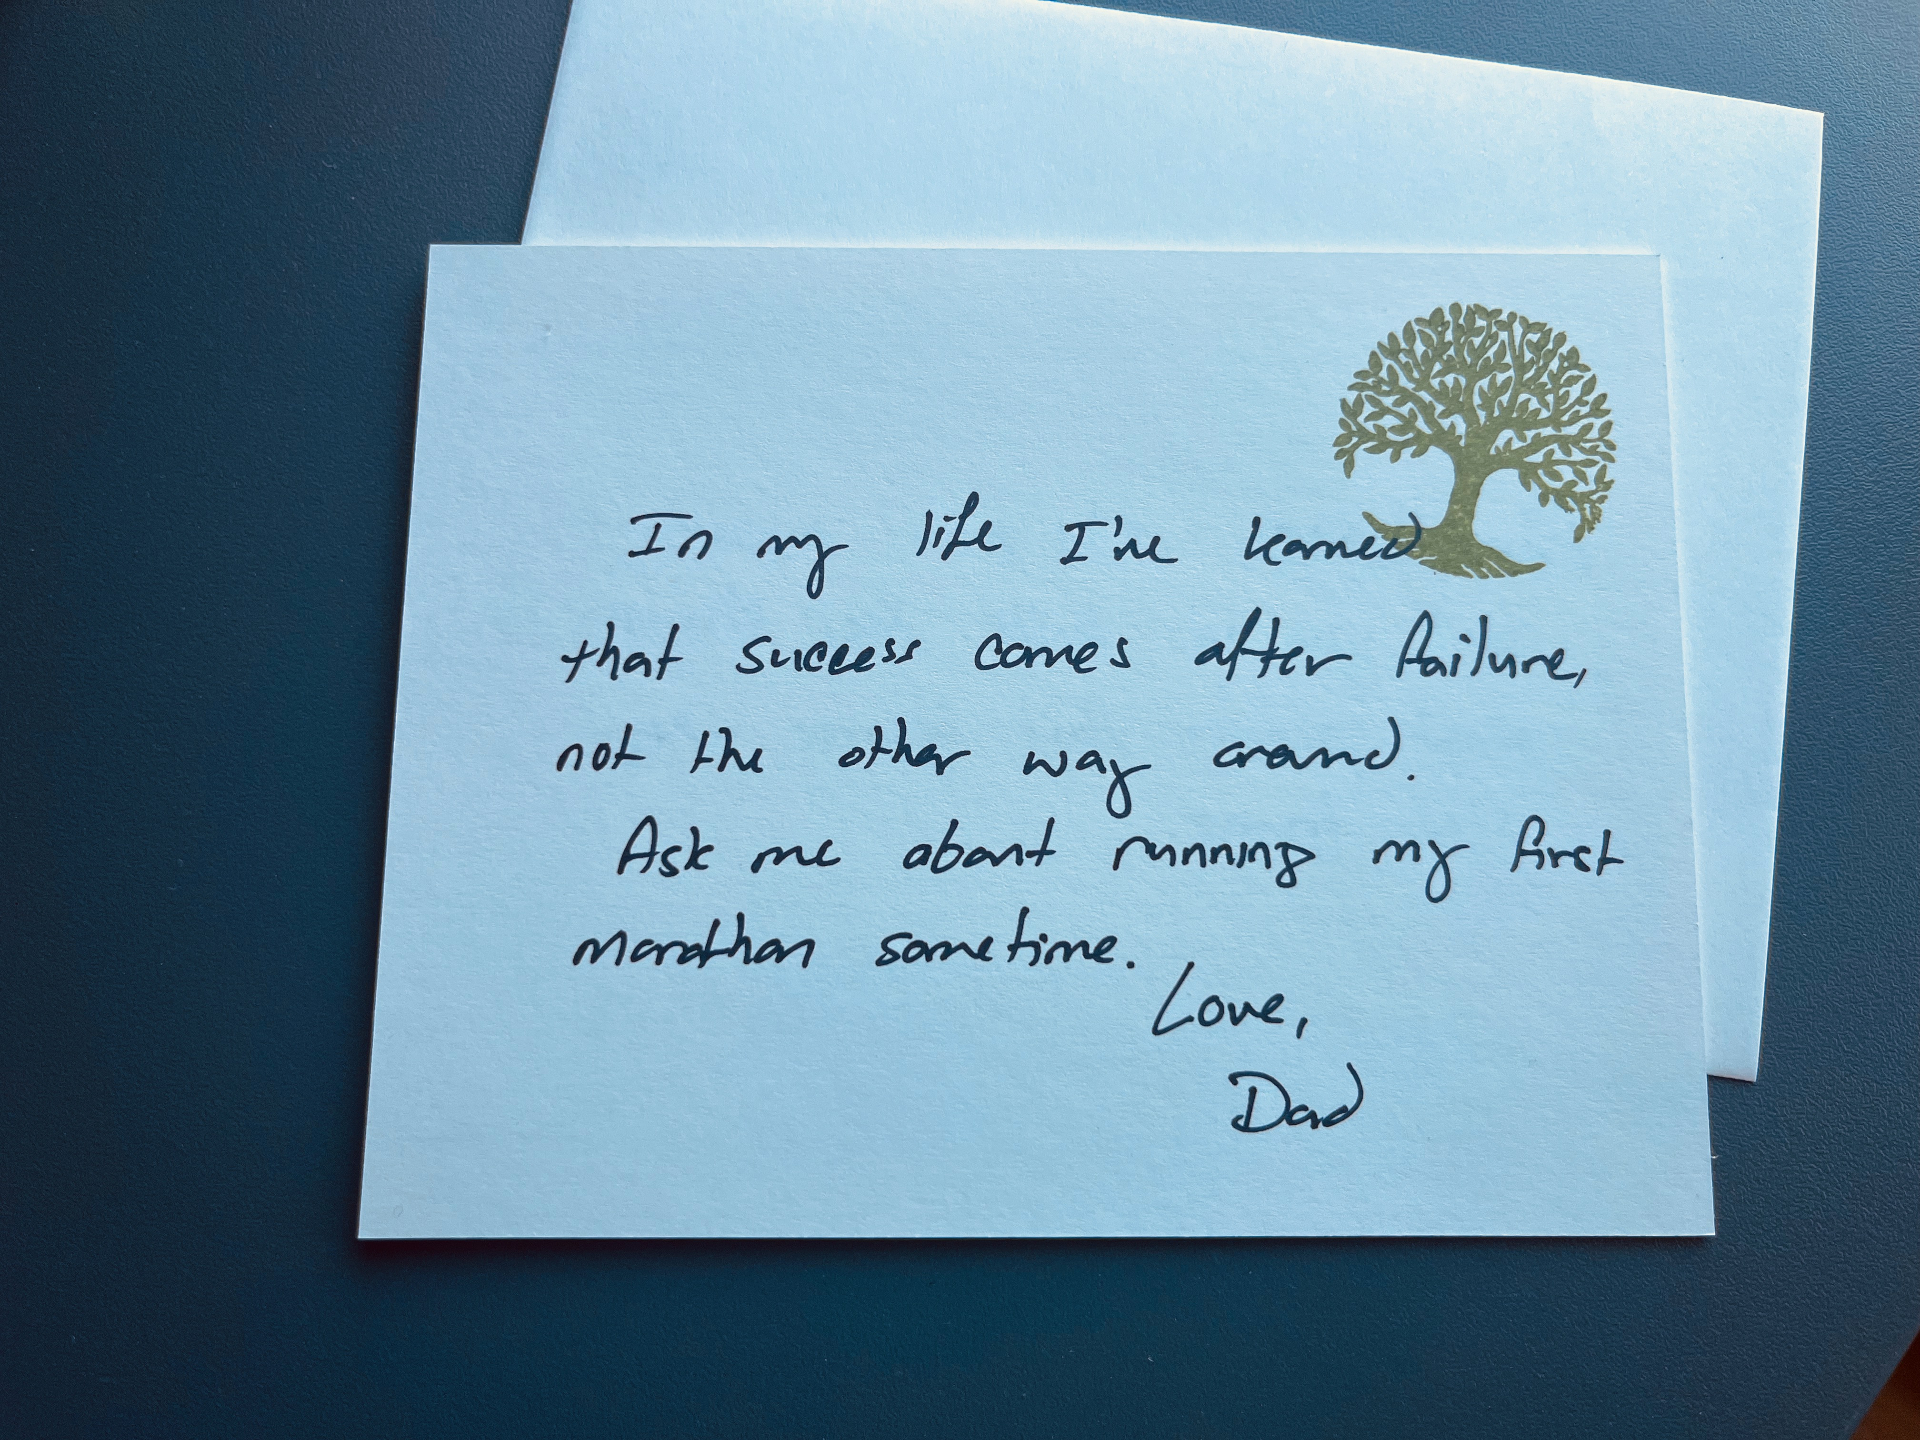 In my life I've learned
that success comes after failure,
not the other way around.
Ask me about running my first
marathon sometime.
Love,
Dad